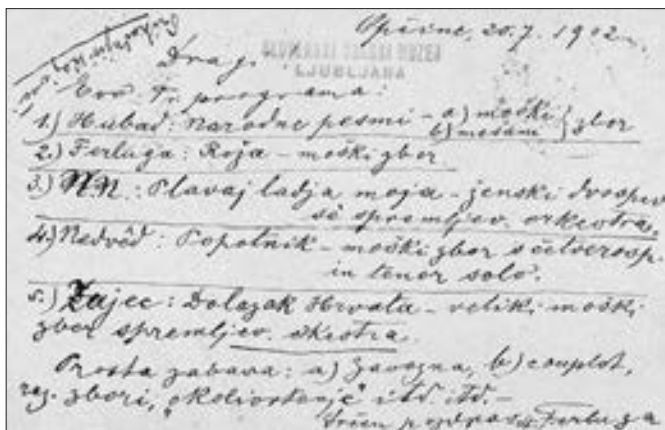 Opčine, 20.7. 1902
Dragi
LJUBLJANA
Evo Ti programa:
1.) Hubad: Narodne pesmi - a) moški } zbor
b) mešani
2.) Ferluga: Roža - moški zbor
3.) N.N.: Plavaj ladja moja - ženski dvospev
s spremljev. orkestra.
4.) Nedvěd: Popotnik - moški zbor s četverosp.
in tenor solo.
5.) Zajec: Dolazak Hrvata - veliki moški
zbor spremljev. orkestra.
Prosta zabava: a) b) couplet,
raz. zbori, itd itd. -
Srčen pozdrav Ferluga